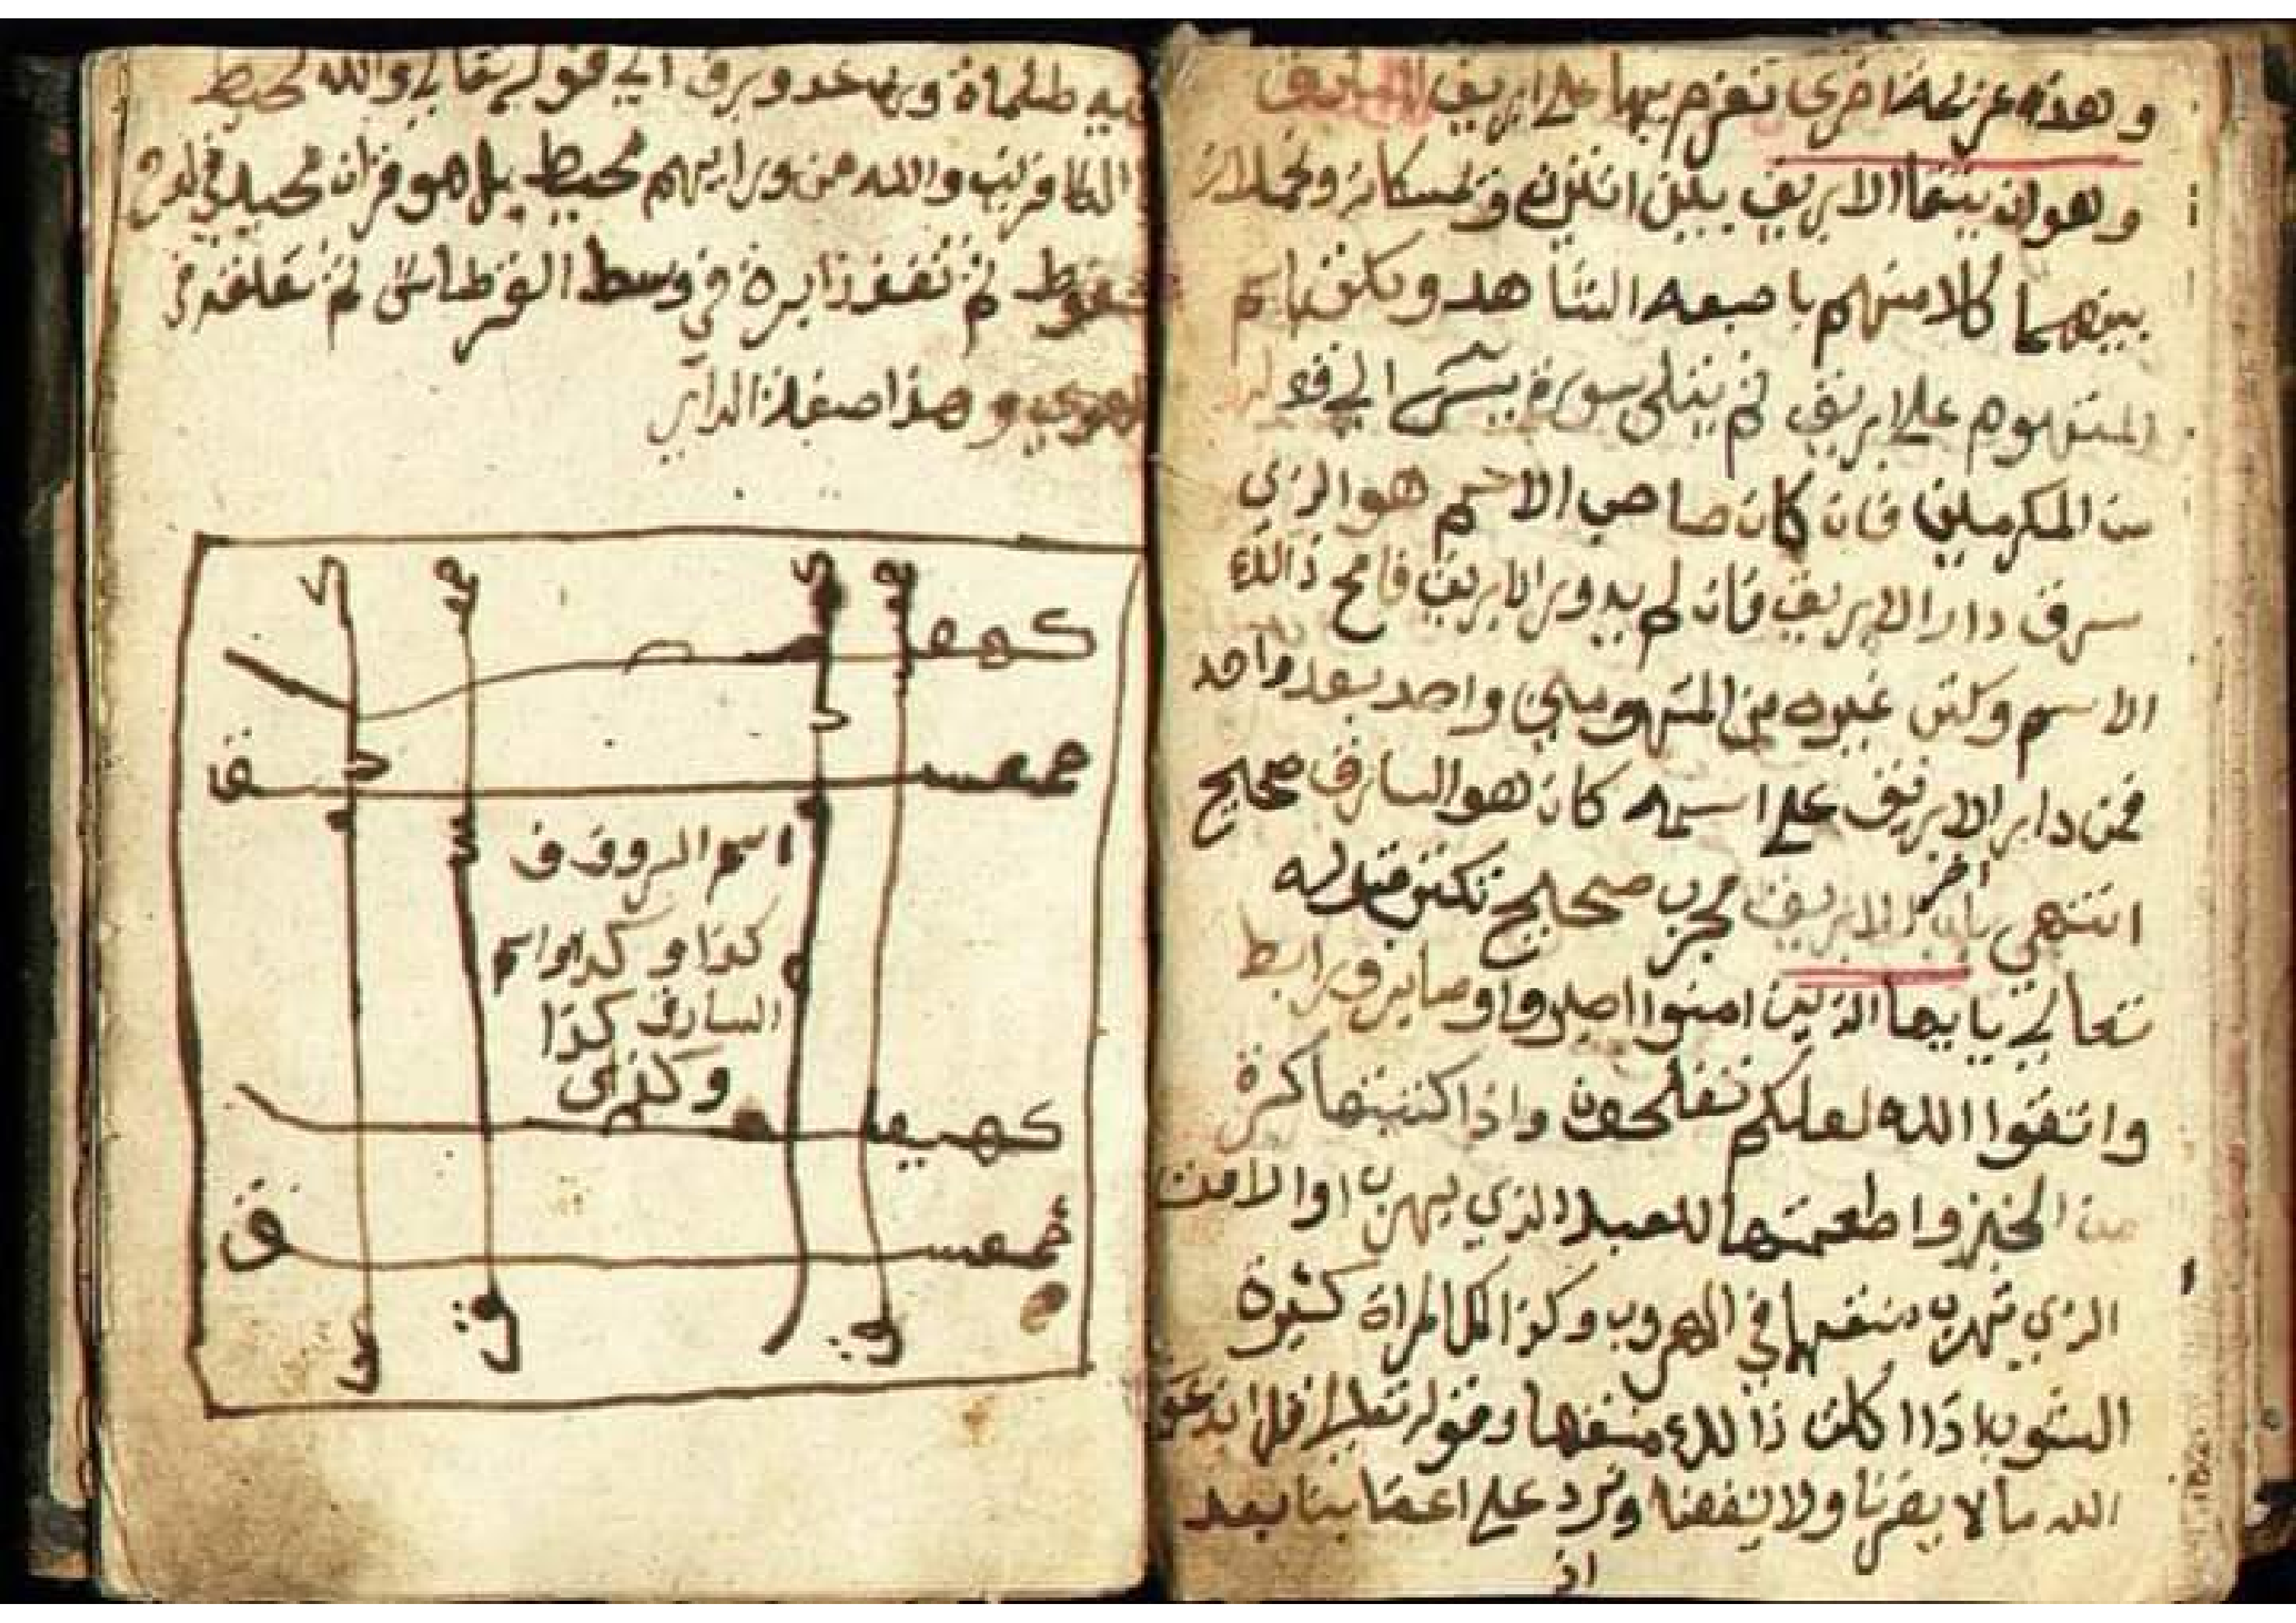 وهذه عزيمة اخرى تعزم بها على ابريق
وهو ان يبقا الابريق بين اثنين
بينهما كلا منهم باصبعه الشاهد ويكتب اسم
المتهوم على ابريق ثم يتلى سورة يس الى قوله
من المكرمين فان كان صاحب الاسم هو الذي
سرق دار الابريق فان لم يدور الابريق فامح ذالك
الاسم وكتب غيره من المتهومين واحد بعد واحد
فمن دار الابريق على اسمه كان هو السارق صحيح
انتهى باب اخر للابريق مجرب صحيح تكتب قوله
تعالى يايها الذين امنوا اصبروا وصابر ورابط
واتقوا الله لعلكم تفلحون واذا كتبتها كرة
من الخبز واطعمتها للعبد الذي يهرب او الامت
الذي تهرب منعتها في الهروب وكذا المراة كثيرة
اذا اكلت ذالك منعها وقوله تعالى قل اندعو
الله مالا يضرنا ولا ينفعنا ونرد على اعقابنا بعد
اذ
فيه ظلماة ورعد وبرق الى قوله تعالى والله محيط
الكافرين والله من ورايهم محيط بل هو قران مجيد في لوح
محفوظ ثم دايرة في وسط القرطاس ثم تعلقه في
الهوى وهذا صفة الداير
كهيعص
حمعسق
اسم السروق
كذا وكذا واسم
السارق كذا
وكذا
كهيعص
حمعسق